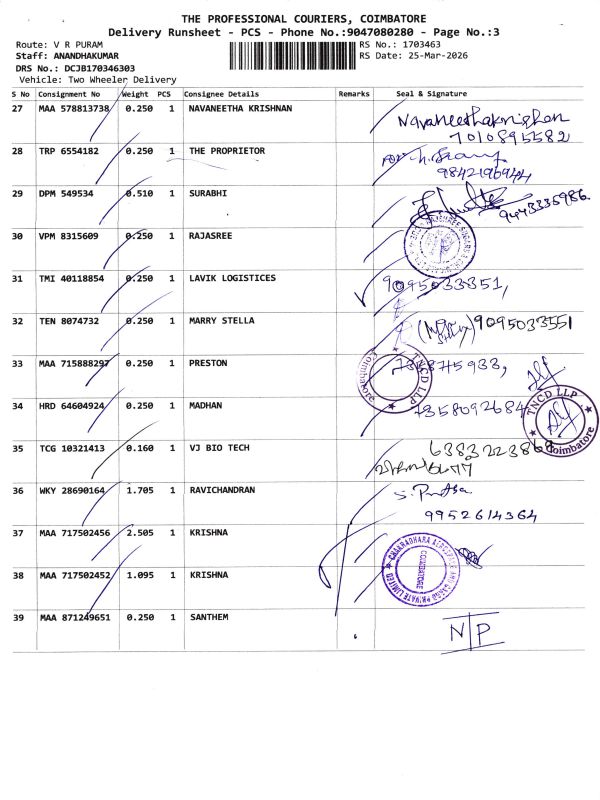 THE PROFESSIONAL COURIERS, COIMBATORE
Delivery Runsheet - PCS - Phone No.:9047080280 - Page No.:3
Route: V R PURAM RS No.: 1703463
Staff: ANANDHAKUMAR RS Date: 25-Mar-2026
DRS No.: DCJB170346303
Vehicle: Two Wheeler Delivery
S No Consignment No Weight PCS Consignee Details Remarks Seal & Signature
27 MAA 578813738 0.250 1 NAVANEETHA KRISHNAN Navaneethakrishnan
7010895582
28 TRP 6554182 0.250 1 THE PROPRIETOR
9842196944
29 DPM 549534 0.510 1 SURABHI
9443335986.
30 VPM 8315609 0.250 1 RAJASREE
31 TMI 40118854 0.250 1 LAVIK LOGISTICES 9095033351,
32 TEN 8074732 0.250 1 MARRY STELLA 9095033551
33 MAA 715888297 0.250 1 PRESTON
TNCD LLP
Coimbatore
34 HRD 64604924 0.250 1 MADHAN 7358092684
TNCD LLP
Coimbatore
35 TCG 10321413 0.160 1 VJ BIO TECH
36 WKY 28690164 1.705 1 RAVICHANDRAN
9952614364
37 MAA 717502456 2.505 1 KRISHNA
38 MAA 717502452 1.095 1 KRISHNA
PRIVATE LIMITED
COIMBATORE
39 MAA 871249651 0.250 1 SANTHEM N|P